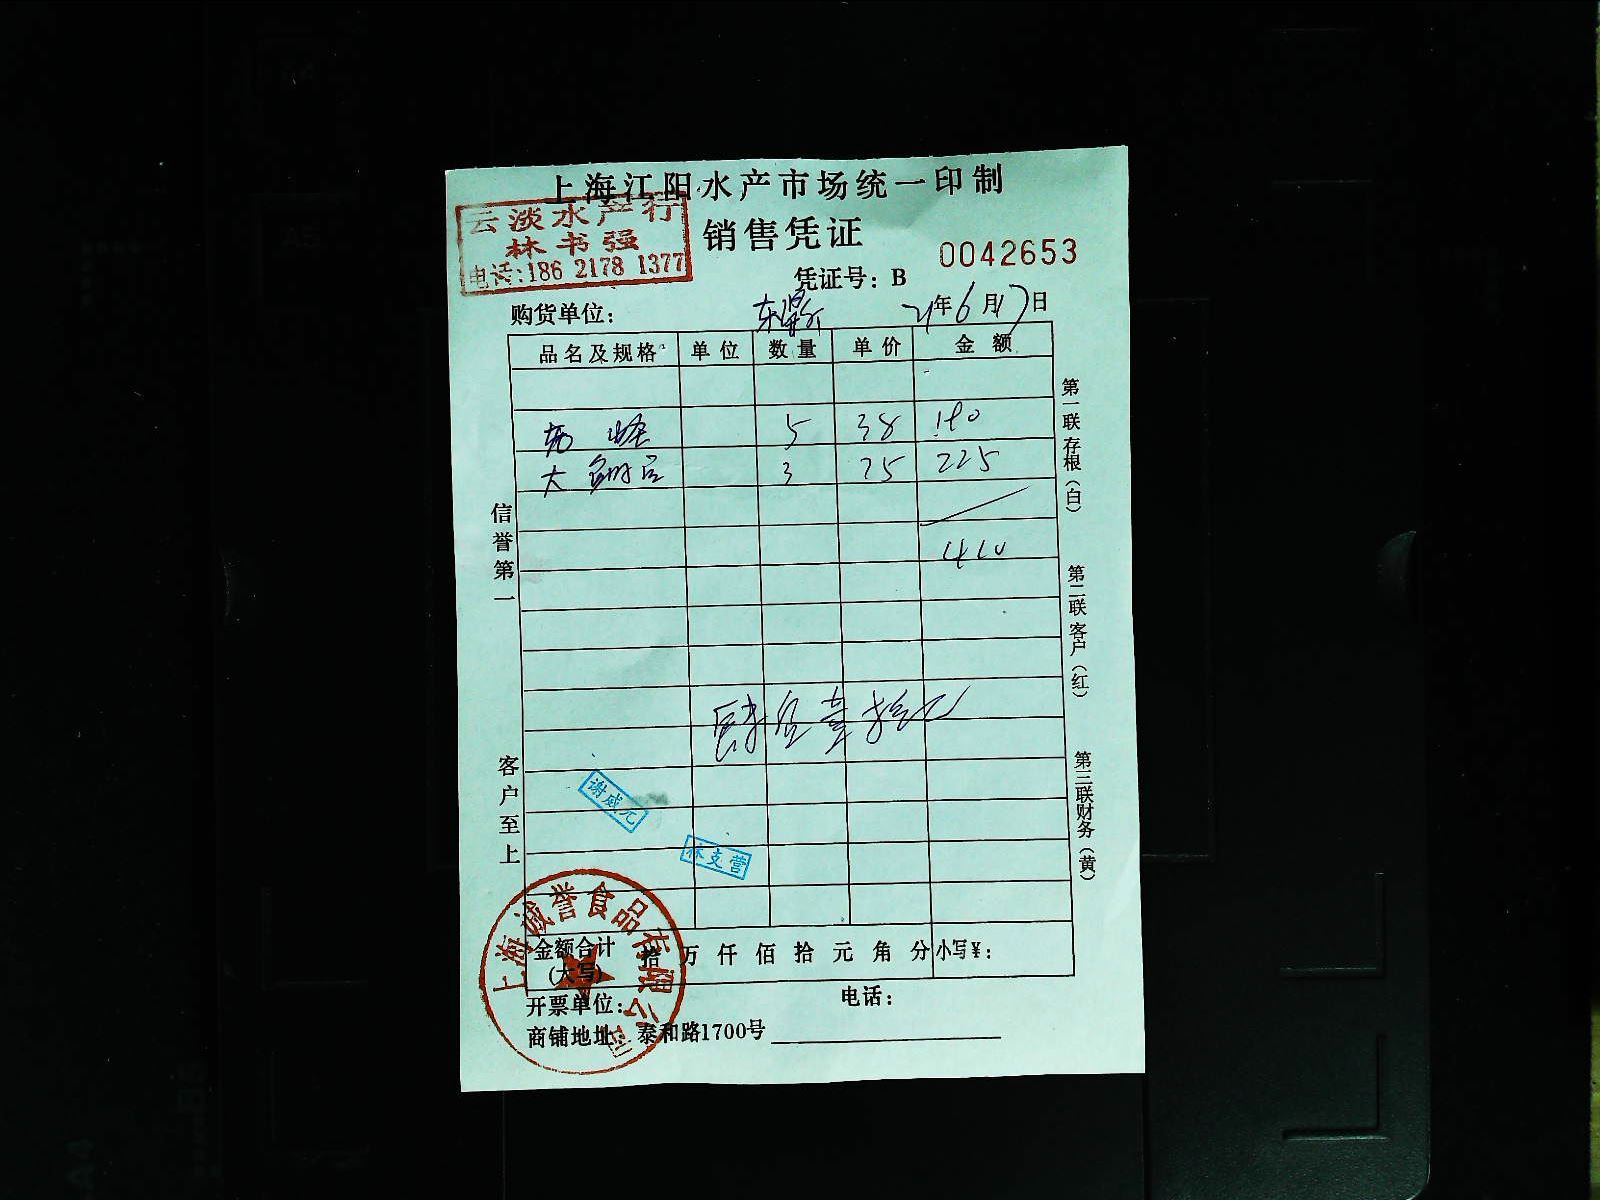 上海江阳水产市场统一印制
云淡水产行
林书强
电话:186 2178 1377
销售凭证
0042653
凭证号：B
购货单位：
21年6月17日
品名及规格 单位 数量 单价 金额
5 38 190
大 3 75 225
410
肆佰壹拾元
信誉第一
客户至上
第一联存根（白）
第二联客户（红）
第三联财务（黄）
谢威元
林支营
上海诚誉食品有限公司
金额合计(大写) 拾 万 仟 佰 拾 元 角 分 小写¥：
开票单位： 电话：
商铺地址：泰和路1700号